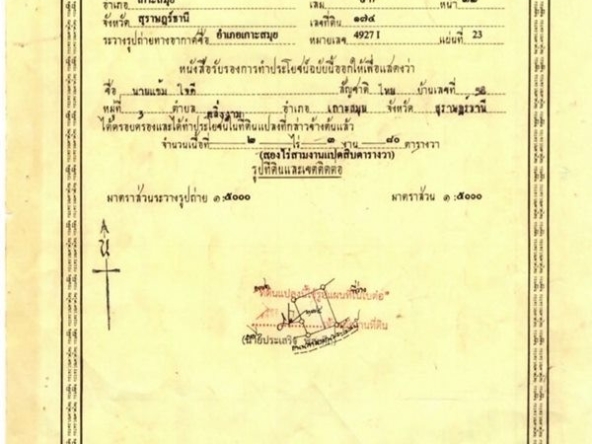 อำเภอ เกาะสมุย หน้า
จังหวัด สุราษฎร์ธานี เลขที่ดิน ๑๗๔
ระวางรูปถ่ายทางอากาศชื่อ อำเภอเกาะสมุย หมายเลข 4927 I แผ่นที่ 23
หนังสือรับรองการทำประโยชน์ฉบับนี้ออกให้เพื่อแสดงว่า
ชื่อ นายแช่ม โชติ สัญชาติ ไทย บ้านเลขที่
หมู่ที่ 3 ตำบล ตลิ่งงาม อำเภอ เกาะสมุย จังหวัด สุราษฎร์ธานี
ได้ครอบครองและได้ทำประโยชน์ในที่ดินแปลงที่กล่าวข้างต้นแล้ว
จำนวนเนื้อที่ ๒ ไร่ ๓ งาน ๘๐ ตารางวา
(สองไร่สามงานแปดสิบตารางวา)
รูปที่ดินและเขตติดต่อ
มาตราส่วนระวางรูปถ่าย ๑:๕๐๐๐ มาตราส่วน ๑:๕๐๐๐
น
"ที่ดินแปลงนี้ใช้รูปแผนที่ในใบต่อ"
เจ้าพนักงานที่ดิน
(นายประเสริฐ